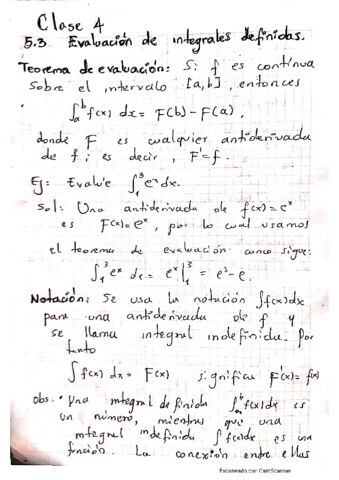 Clase 4
5.3 Evaluación de integrales definidas.
Teorema de evaluación: Si f es contínua
sobre el intervalo [a,b], entonces
∫_a^b f(x) dx = F(b) - F(a),
donde F es cualquier antiderivada
de f; es decir, F' = f.
Ej: Evalúe ∫_1^3 e^x dx.
Sol: Una antiderivada de f(x) = e^x
es F(x) = e^x, por lo cual usamos
el teorema de evaluación como sigue:
∫_1^3 e^x dx = e^x |_1^3 = e^3 - e.
Notación: Se usa la notación ∫f(x)dx
para una antiderivada de f y
se llama integral indefinida. Por
tanto
∫ f(x) dx = F(x) significa F'(x) = f(x)
Obs: Una integral definida ∫_a^b f(x)dx es
un número, mientras que una
integral indefinida ∫ f(x)dx es una
función. La conexión entre ellas
Escaneado con CamScanner